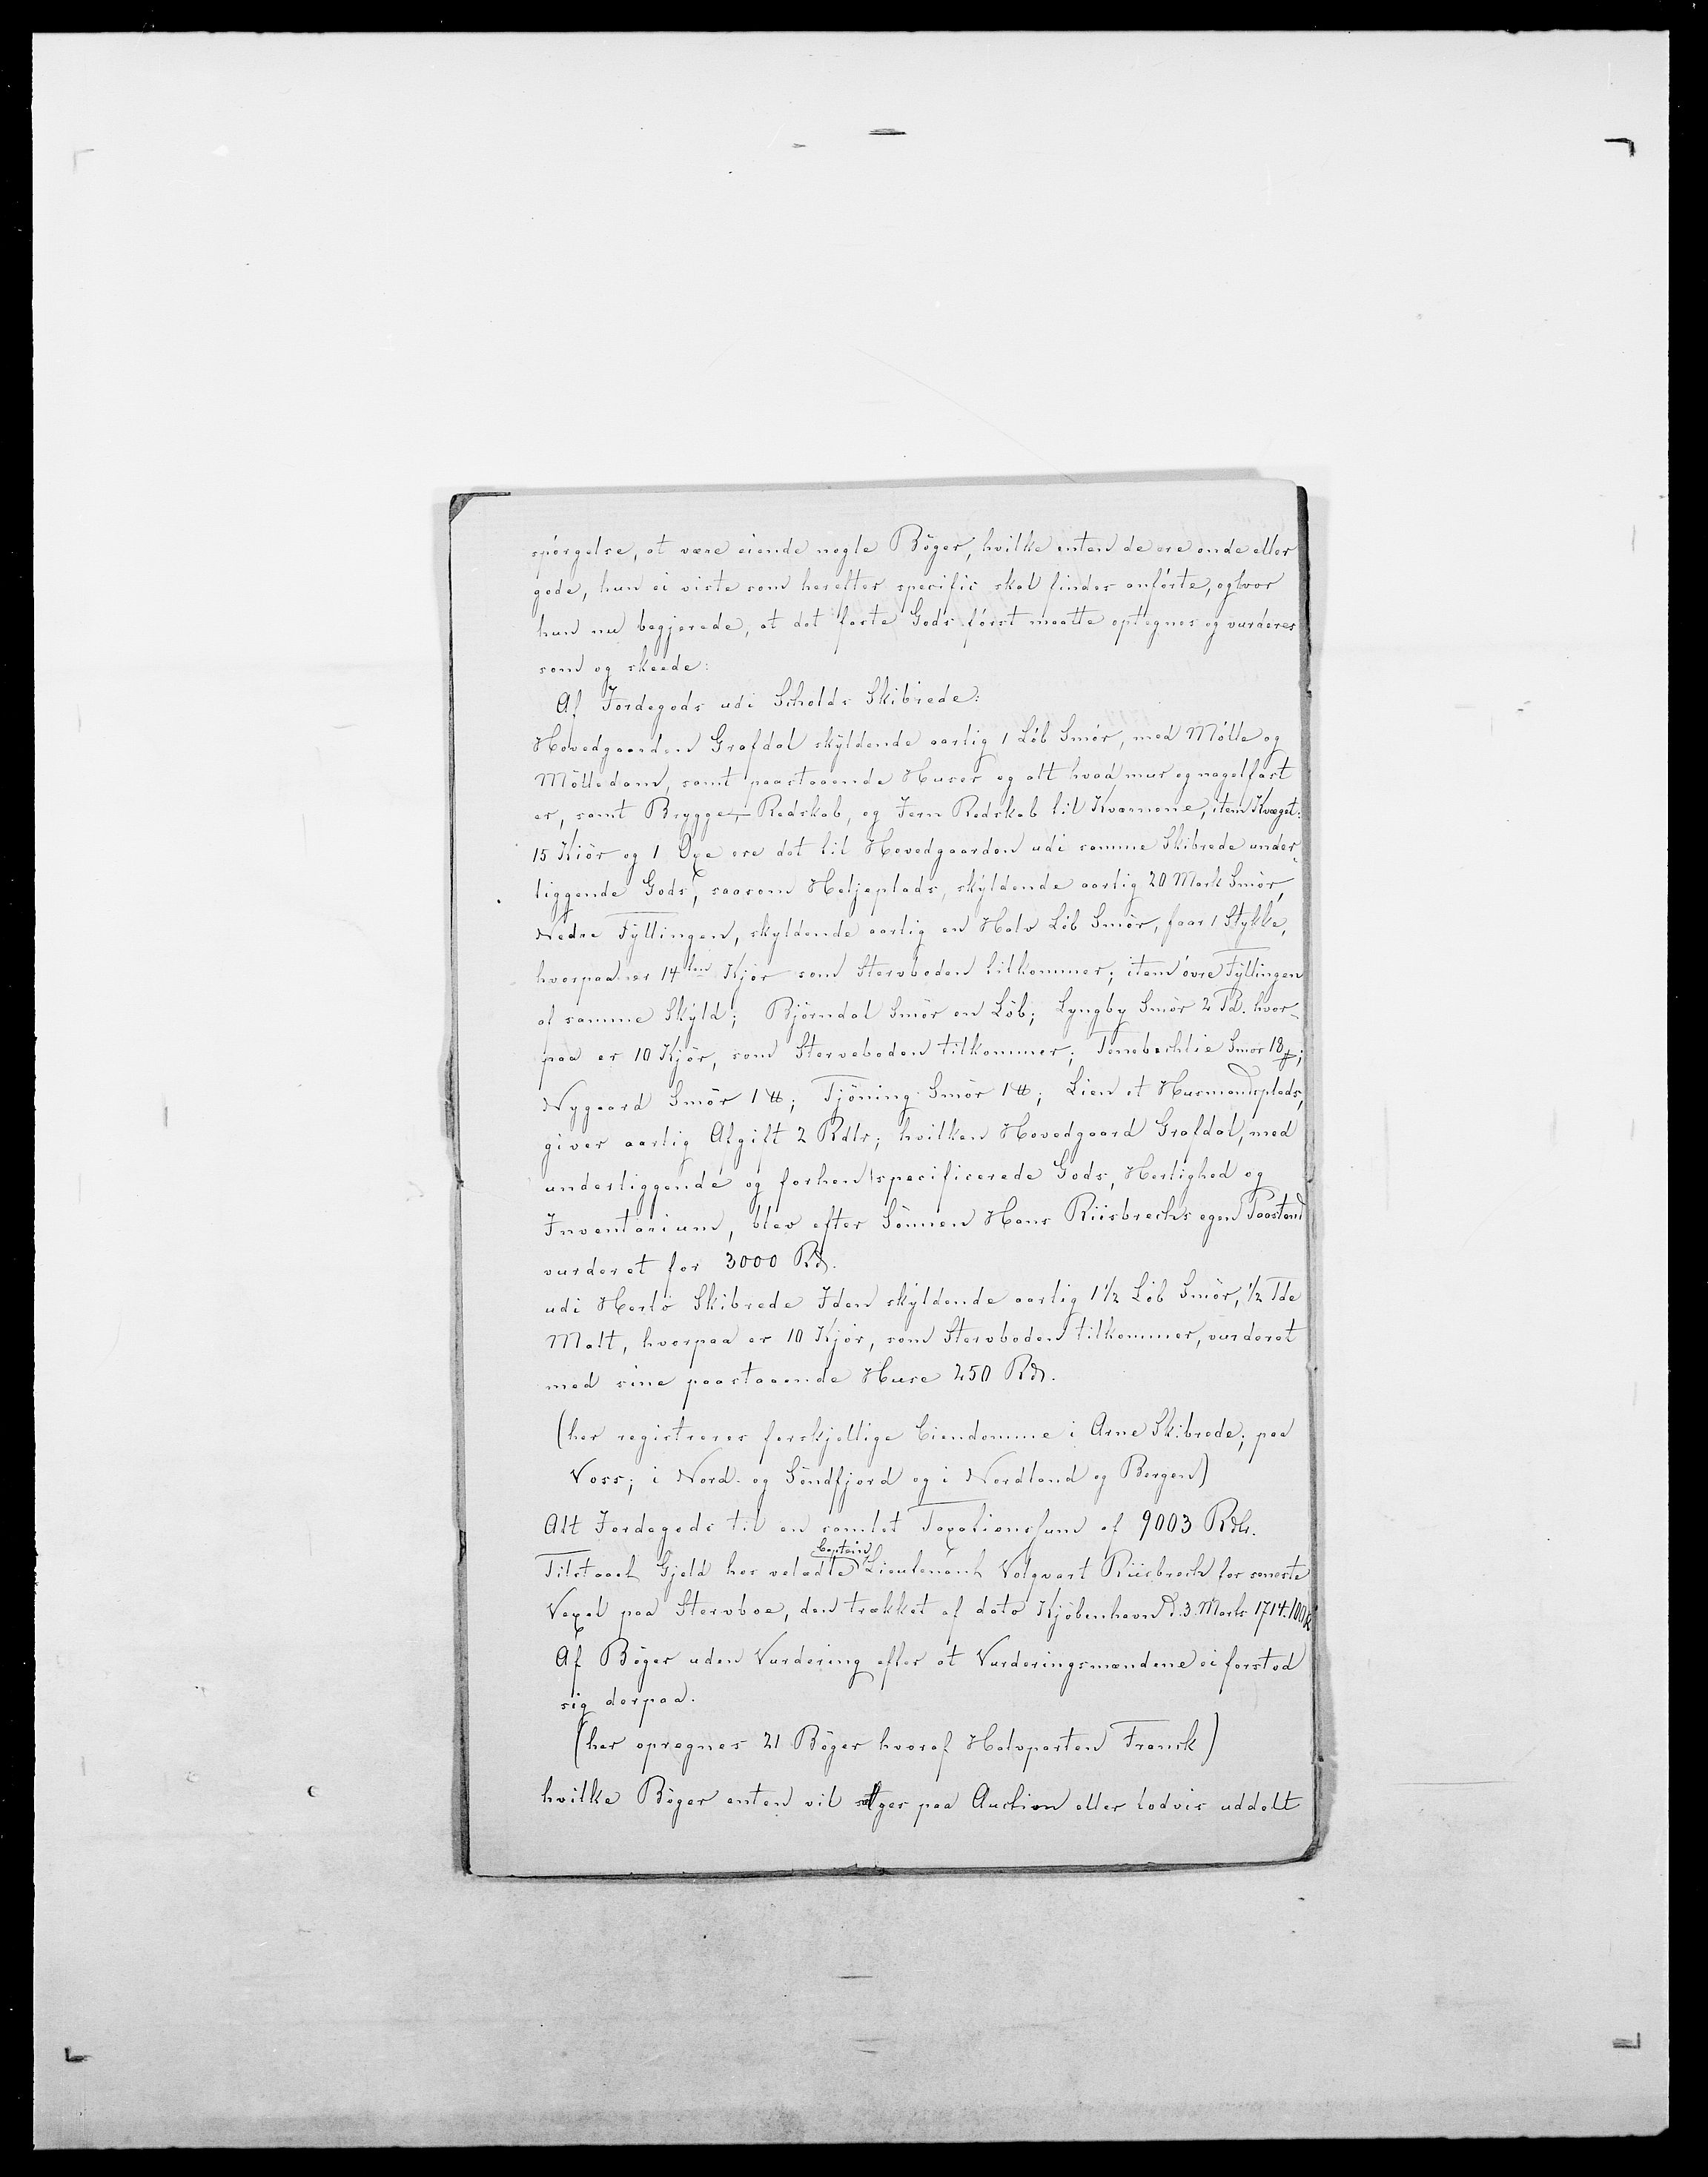 spørgelse, at være eiende nogle Bøger, hvilke enten de ere onde eller
gode, hun ei viste som herefter specific skal findes anførte, og hvor
hun nu begjerede, at det faste Gods først maatte optegnes og vurderes
som og skeede:
Af Jordegods udi Scholds Skibrede:
Hovedgaarden Grafdal skyldende aarlig 1 Løb Smør, med Mølle og
Mølledam, samt paastaaende Huser og alt hvad mur og nagelfast
er, samt Brygge-Redskab, og Jern Redskab til Kvernene, item Kvæget:
15 Kiör og 1 Oxe ere det til Hovedgaarden udi samme Skibrede under-
liggende Gods, saasom Heljeplads, skyldende aarlig 20 Mark Smør,
Nedre Fyllingen, skyldende aarlig en Halv Løb Smør, faar 1 Stykke,
hvorpaa er 14ten Kjør som Stervboden tilkommer; item øvre Fyllingen
af samme Skyld; Bjørndal Smør en Løb; Lyngby Smør 2 Pd. hvor-
paa er 10 Kjør, som Sterveboden tilkommer; Tenebechlie Smør 18 ;
Nygaard Smør 1 ℔; Tjöning Smør 1 ℔; Lien et Husmandsplads,
giver aarlig Afgift 2 Rdlr; hvilken Hovedgaard Grafdal, med
underliggende og forhen specificerede Gods, Herlighed og
Inventarium, blev efter Sønnen Hans Riisbrechs egen Paastand
vurderet for 3000 Rd.
udi Herlø Skibrede Iden skyldende aarlig 1 1/2 Løb Smør, 1/2 Tde
Malt, hvorpaa er 10 Kjør, som Stervboden tilkommer, vurderet
med sine paastaaende Huse 250 Rd.
(her registreres forskjellige Eiendomme i Arne Skibrede; paa
Voss; i Nord- og Søndfjord og i Nordland og Bergen)
Alt Jordegods til en samlet Taxationssum af 9003 Rdlr.
Captain
Tilstaaet Gjeld hos velædle Lieutenant Volqvart Riisbrech for seneste
Vexel paa Stervboe, den trækket af dato Kjøbenhavn d. 3 Marts 1714. 100 R
Af Bøger uden Vurdering efter at Vurderingsmændene ei forstod
sig derpaa.
(her opregnes 21 Bøger hvoraf Halvparten Fransk)
hvilke Bøger enten vil sælges paa Auction eller lodvis uddelt